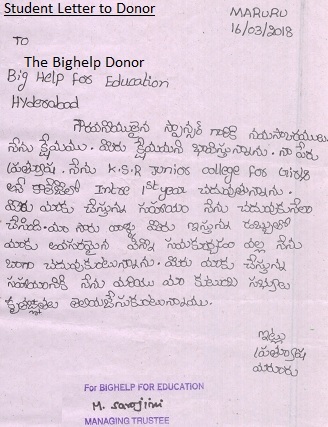 Student Letter to Donor
MARURU
16/03/2018
TO
The Bighelp Donor
Big Help For Education
Hyderabad
గౌరవనీయులైన స్పాన్సర్ గారికి నమస్కారములు.
నేను క్షేమము. మీరు క్షేమమని భావిస్తున్నాను. నా పేరు
ప్రత్యూష. నేను K.S.R Junior College For Girls
అనే కాలేజీలో Inter 1st year చదువుతున్నాను.
మీరు మాకు చేస్తున్న సహాయం నేను చదువుకునేలా
చేసింది. మీరు ఇస్తున్న డబ్బులతో
మాకు అవసరమైన వల్ల నేను
బాగా చదువుకుంటున్నాను. మీరు మాకు చేస్తున్న
సహాయానికి నేను మరియు మా కుటుంబ సభ్యులు
కృతజ్ఞతలు తెలియజేసుకుంటున్నాము.
ఇట్లు
ప్రత్యూష
మరూరు
For BIGHELP FOR EDUCATION
M. Sarojini
MANAGING TRUSTEE